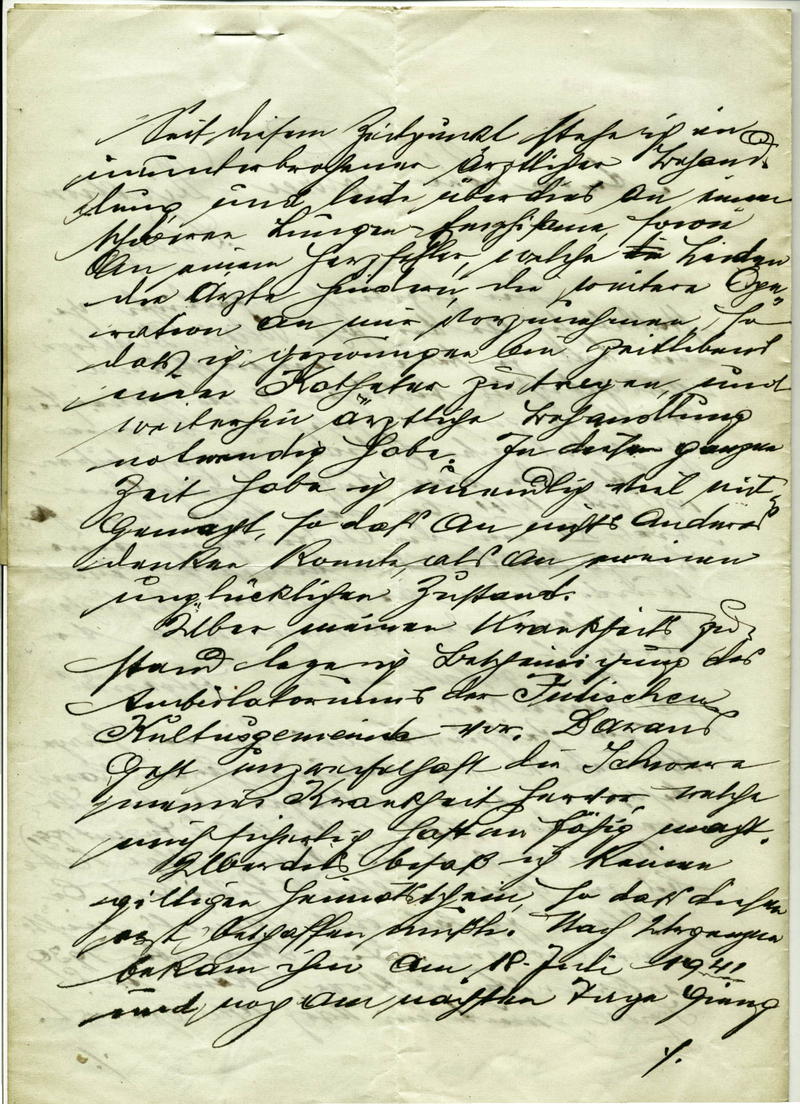 Seit diesem Zeitpunkt stehe ich in
ununterbrochener ärztlicher Behand-
lung und leide überdies an einem
schweren Lungen-Emphisem, sowie
An einem Herzfehler, welche Leiden
die Ärzte hindern, die weitere Ope-
ration an mir vorzunehmen, so
daß ich gezwungen bin zeitlebens
einen Katheter zu tragen, und
weiterhin ärztliche Behandlung
notwendig habe. In dieser ganzen
Zeit habe ich unendlich viel mit-
gemacht, so daß an nichts Anderes
denken konnte, als an meinen
unglücklichen Zustand.
Über meinen Krankheits zu-
stand lege ich Bescheinigung des
Ambulatoriums der Jüdischen
Kultusgemeinde vor. Daraus
geht unzweifelhaft die Schwere
meiner Krankheit hervor, welche
mich sicherlich haftunfähig macht.
Überdies besaß ich keinen
giltigen Heimatschein, so daß diesen
erst beschaffen mußte. Nach
bekam ihn am 18. Juli 1941
und noch am nächsten Tage gieng
/.